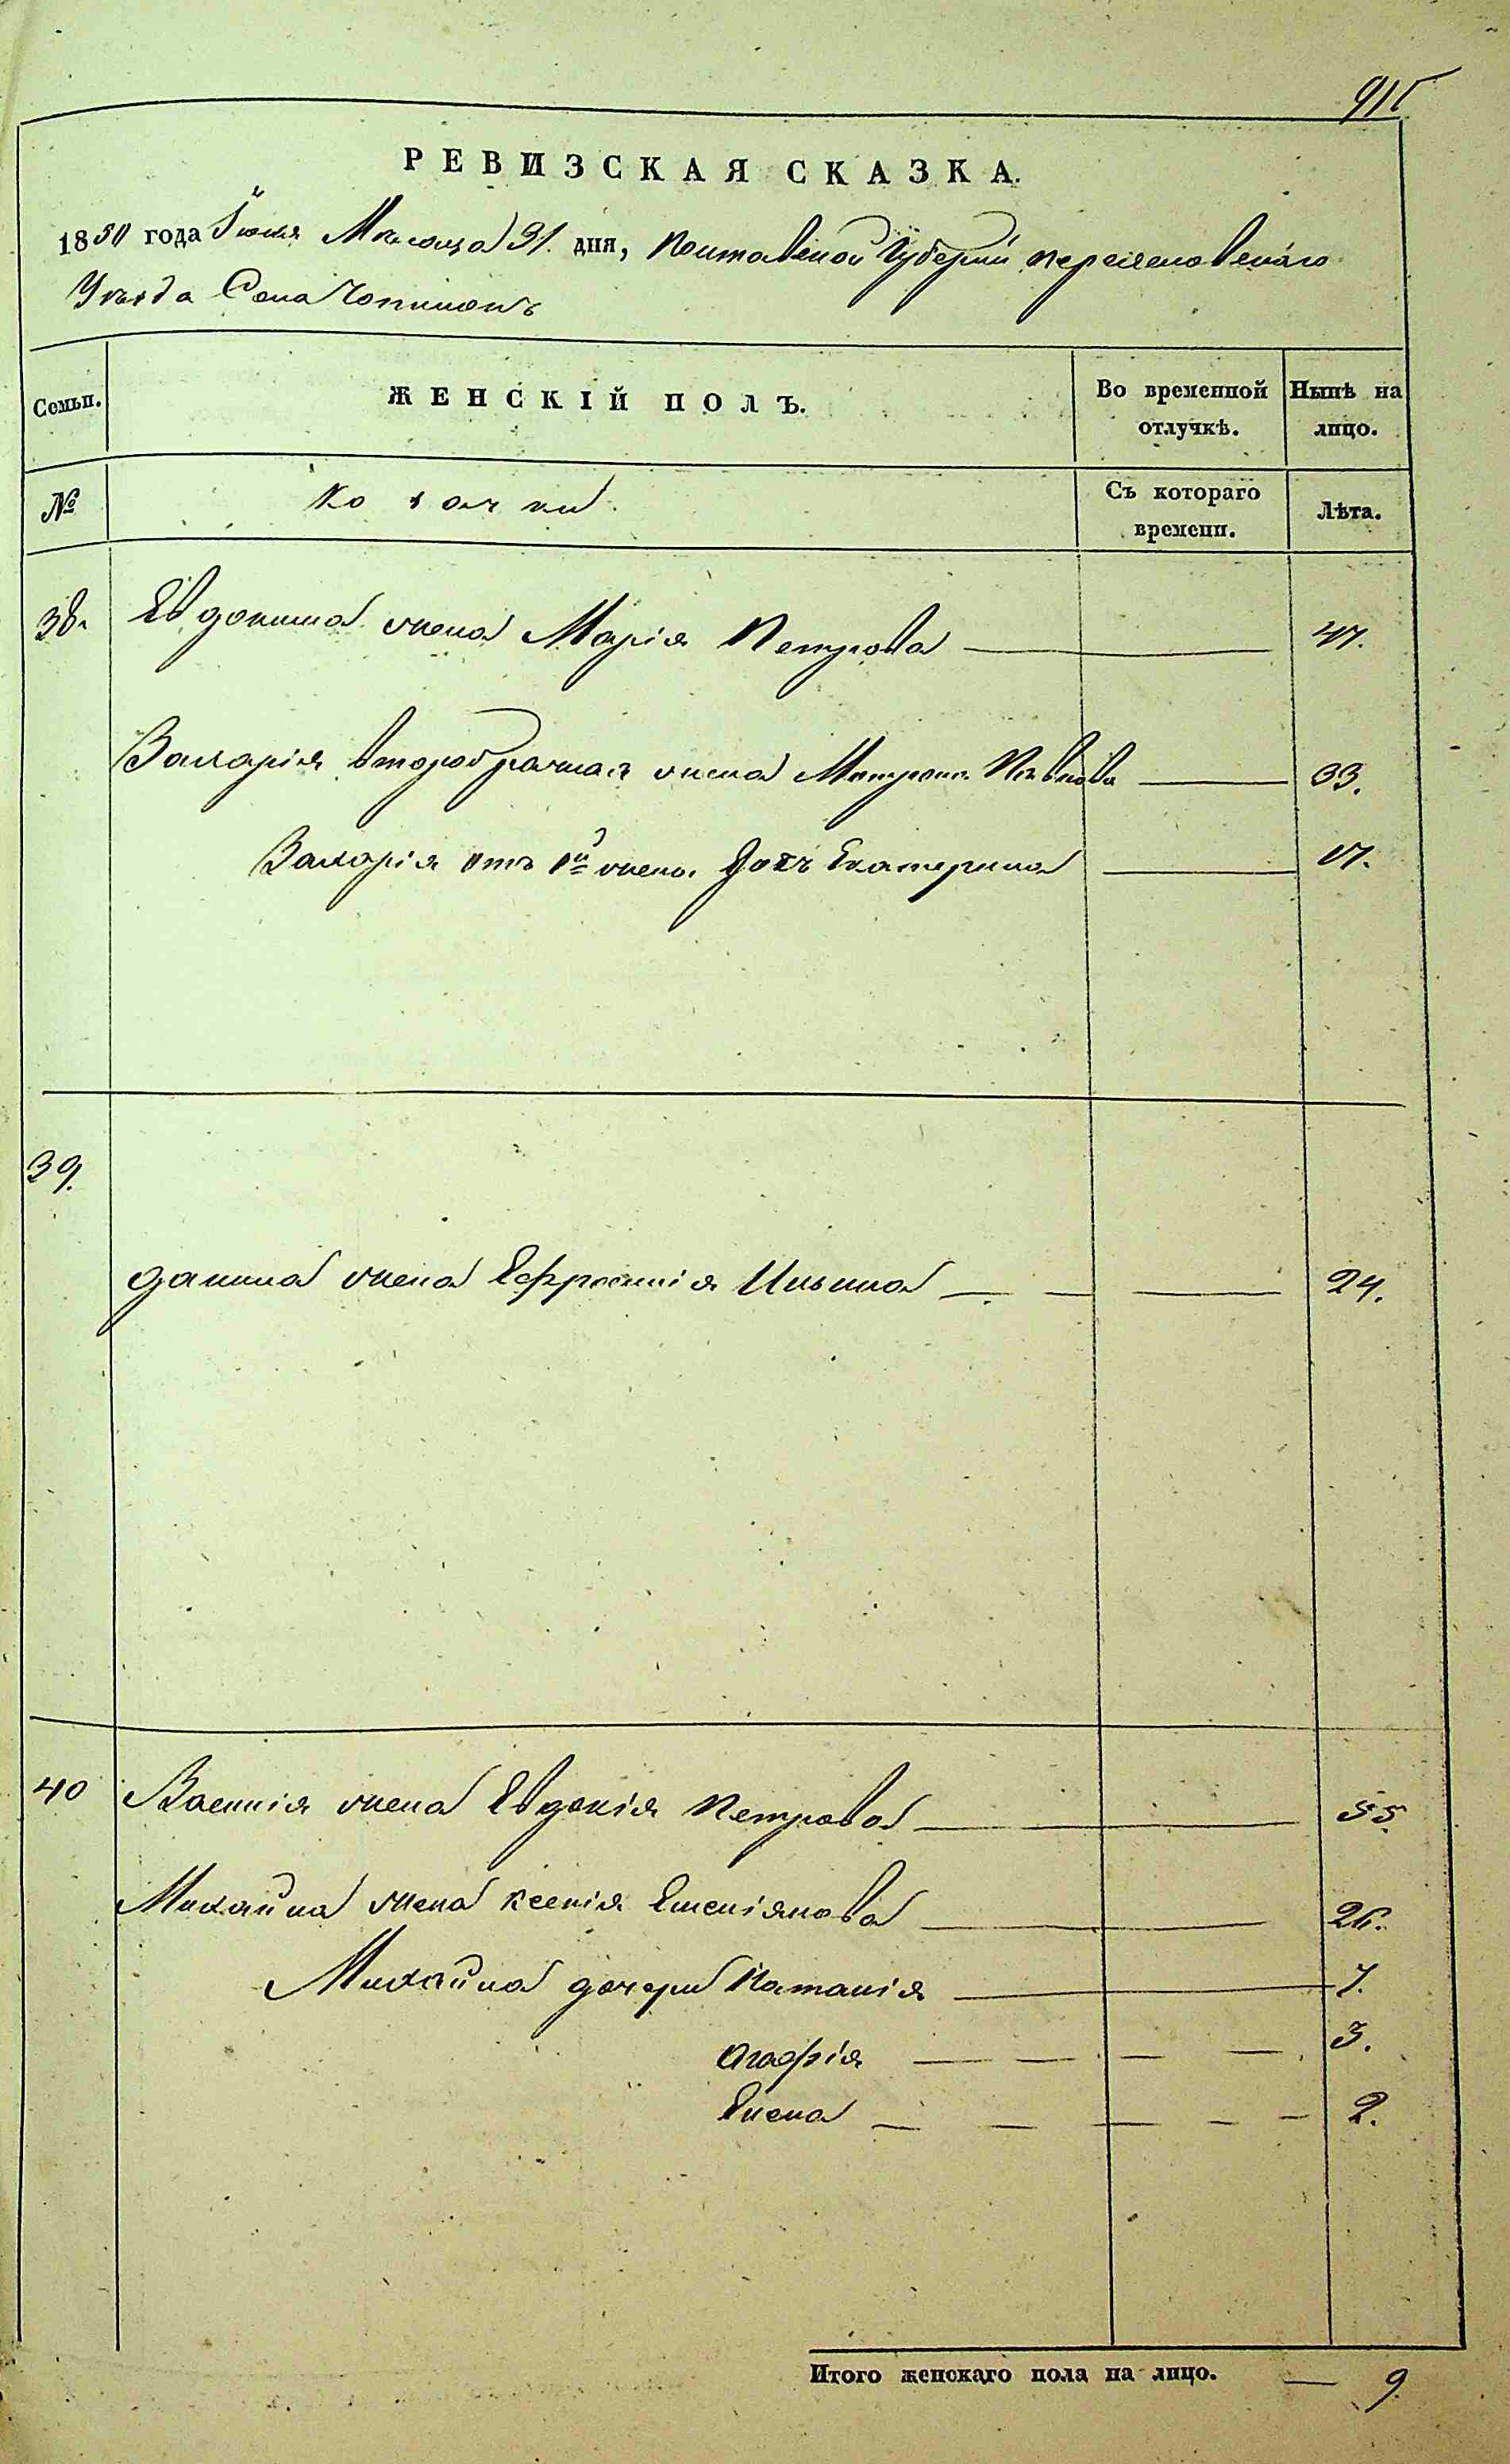 915
РЕВИЗСКАЯ СКАЗКА.
1850 года Іюля Месяца 31. дня, Полтавской Губерніи Переяславскаго
Уезда Села Чопилокъ
Семьи.
ЖЕНСКІЙ ПОЛЪ.
Во временной отлучкѣ.
Нынѣ на лицо.
№
Козачки
Съ котораго времени.
Лѣта.
38. Евдокима жена Марія Петрова 47.
Захарія второбрачная жена Матрона 33.
Захарія отъ 1й жены Дочь Екатерина 17.
39.
Данила жена Ефросинія Ильина 24.
40 Василія жена Евдокія Петрова 55.
Михайла жена Ксенія Емеліянова 26.
Михайла дочери Наталія 7.
Агафія 3.
Елена 2.
Итого женскаго пола на лицо. — 9.